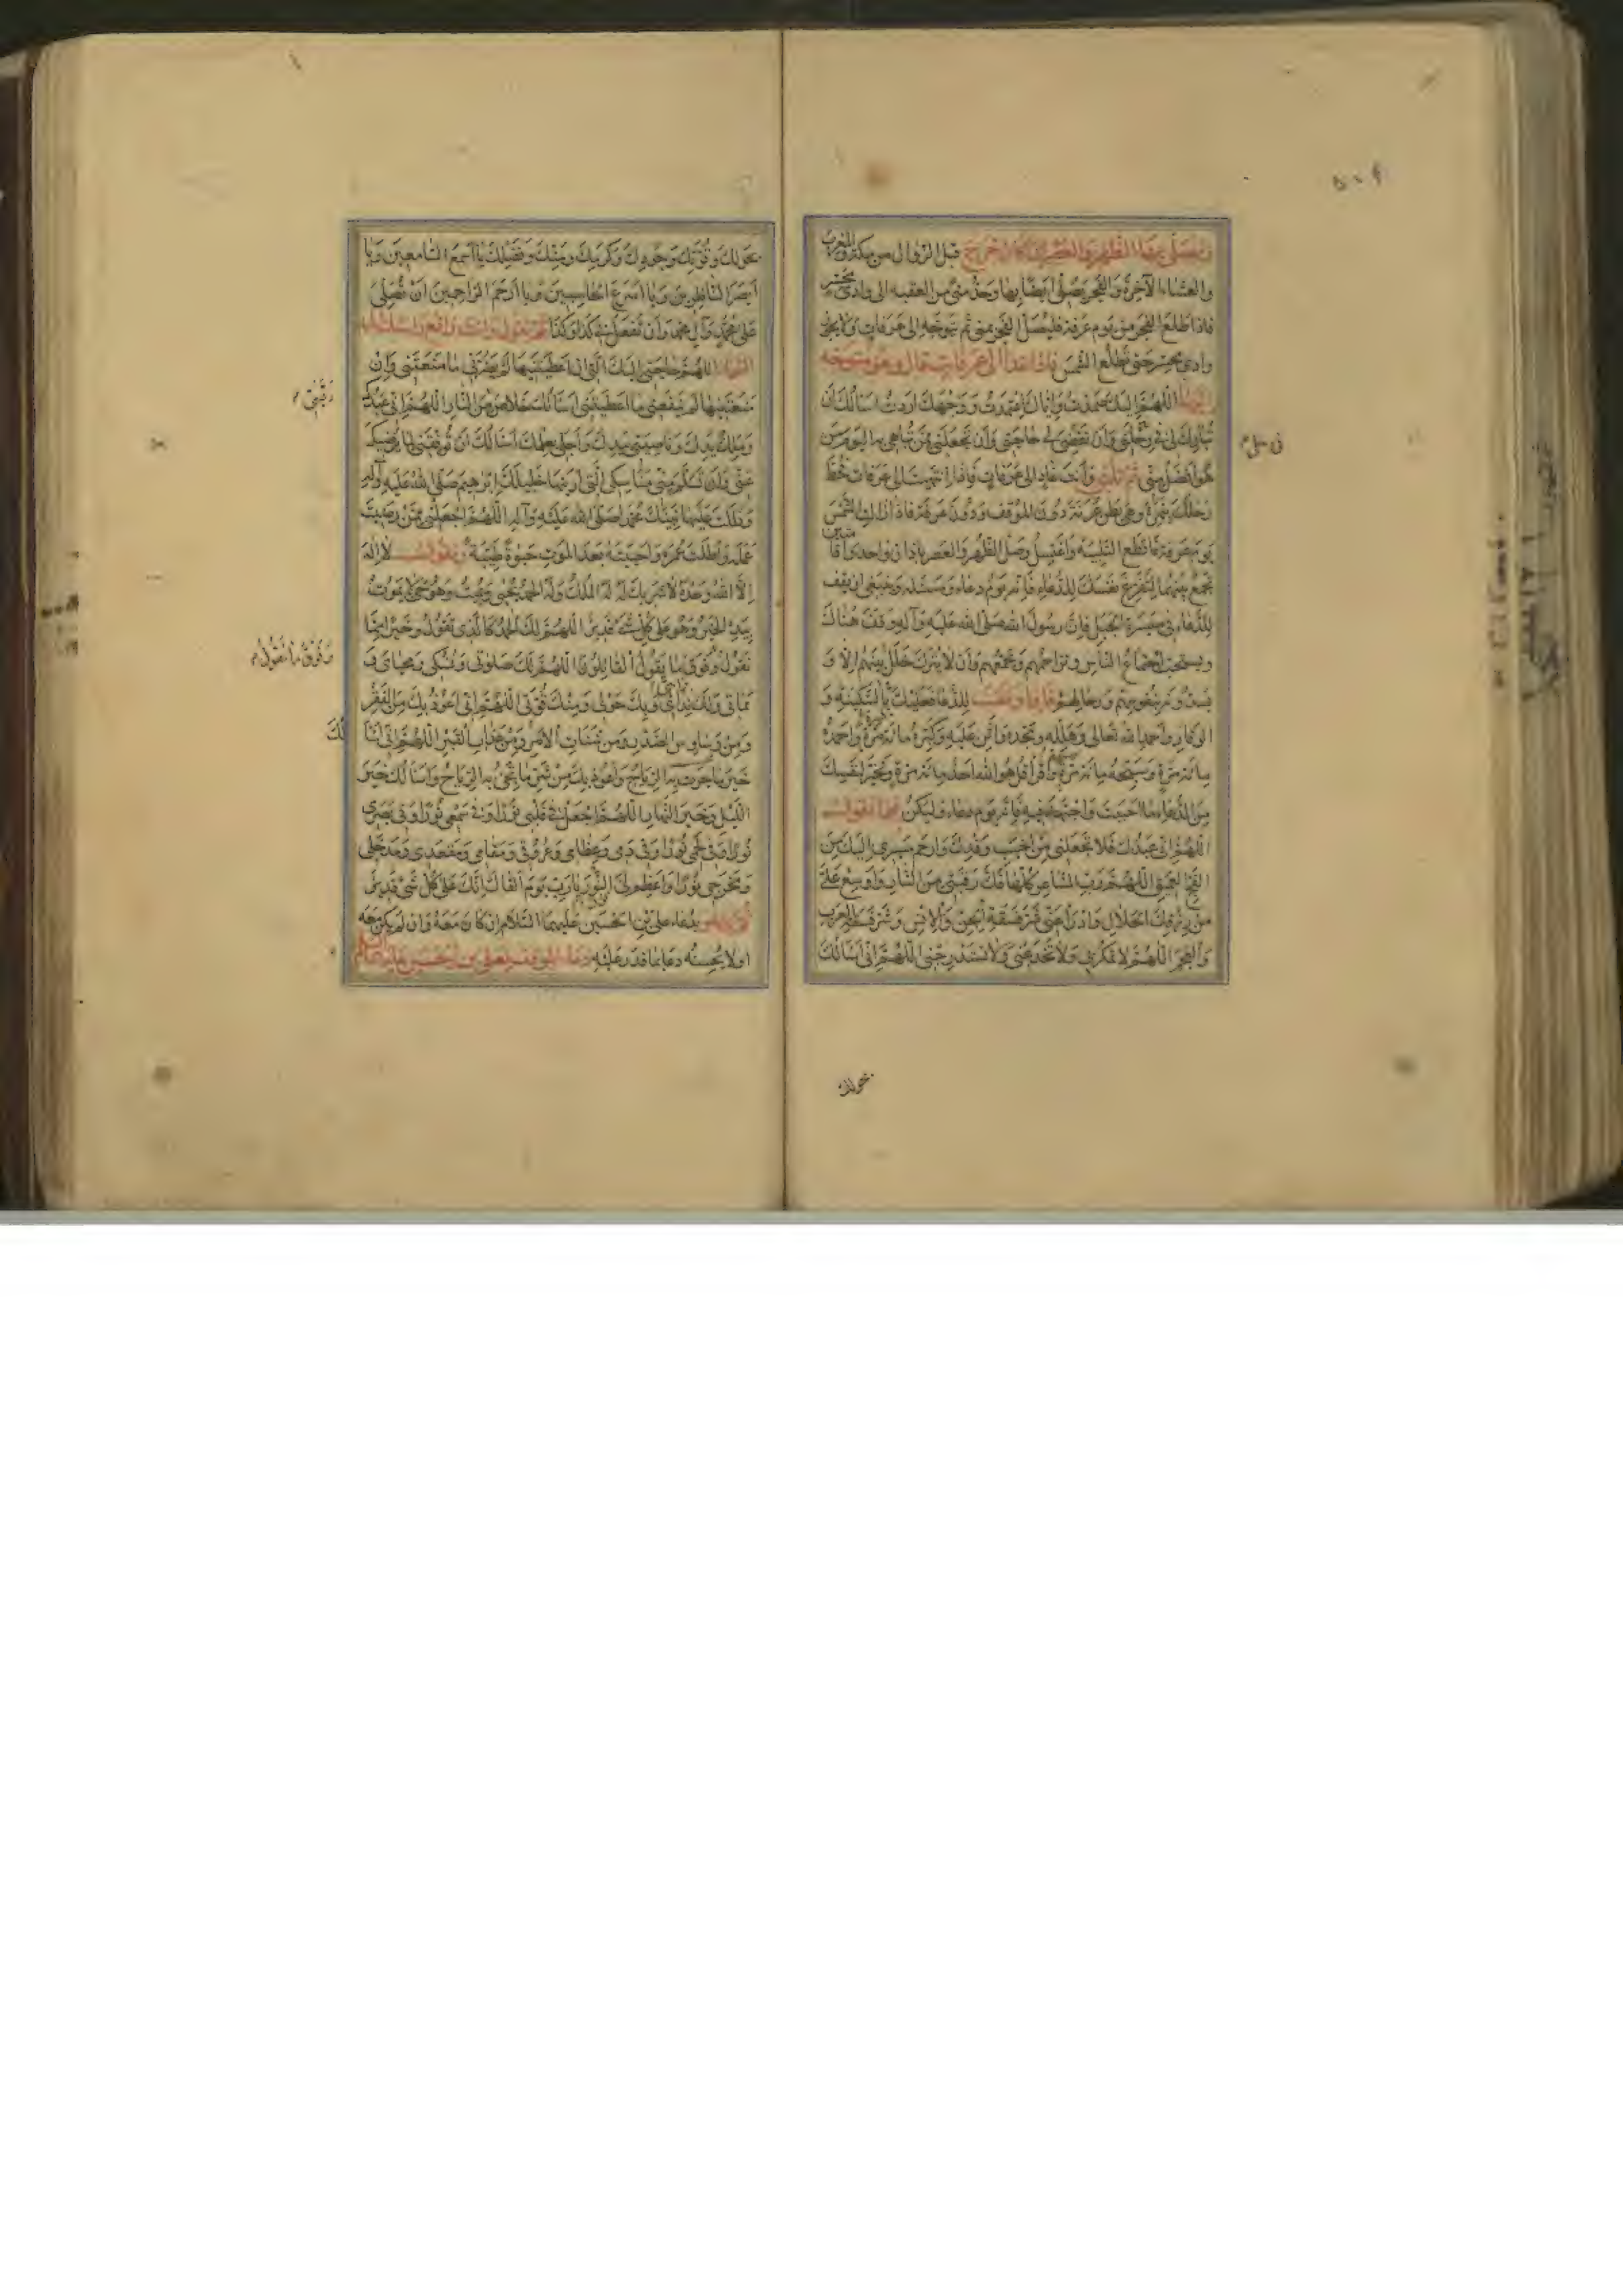 ويصلي بها الظهر والعصر ان كان خرج قبل الزوال من مكة والمغرب
والعشاء الآخرة والفجر يصلي ايضا بها وحد منى من العقبه الى وادى محسر
فاذا طلع الفجر من يوم عرفة فليصل الفجر بمنى ثم يتوجه الى عرفات ولا يجوز
وادى محسر حتى تطلع الشمس فاذا غدا الى عرفات قال وهو متوجه
اليها اللهم اليك صمدت واياك اعتمدت ووجهك اردت اسألك ان
تبارك لى فى رحلتى وان تقضى لى حاجتى وان تجعلنى ممن تباهى به اليوم من
هو افضل منى ثم تلبى وانت غاد الى عرفات فاذا انتهيت الى عرفات فحط
رحلك بنمرة وهى بطن عرنة دون الموقف ودون عرفة فاذا زالت الشمس
يوم عرفة فاقطع التلبية واغتسل وصل الظهر والعصر باذان واحد واقامتين
تجمع بينهما لتفرغ نفسك للدعاء فانه يوم دعاء ومسئلة وينبغى ان يقف
للدعاء فى ميسرة الجبل فان رسول الله صلى الله عليه وآله وقف هناك
ويستحب اجتماع الناس وتزاحمهم وتجمعهم وان لا يترك خلل بينهم الا و
يسدونه بنفوسهم ورحالهم فاذا وقفت للدعاء فعليك بالسكينة و
الوقار واحمد الله تعالى وهلله ومجده واثن عليه وكبره مائة مرة واحمده
مائة مرة وسبحه مائة مرة واقرأ قل هو الله احد مائة مرة وتخير لنفسك
من الدعاء ما احببت واجتهد فيه فانه يوم دعاء وليكن فيما تقول
اللهم انى عبدك فلا تجعلنى من اخيب وفدك وارحم مسيرى اليك من
الفج العميق اللهم رب المشاعر كلها فك رقبتى من النار واوسع على
من رزقك الحلال وادرأ عنى شر فسقة الجن والانس وشر فسقة العرب
والعجم اللهم لا تمكر بى ولا تخدعنى ولا تستدرجنى اللهم انى اسألك
بحولك
بحولك وقوتك وجودك وكرمك ومنك وفضلك يا اسمع السامعين ويا
ابصر الناظرين ويا اسرع الحاسبين ويا ارحم الراحمين ان تصلى
على محمد وآل محمد وان تفعل بى كذا وكذا ثم تقول وانت رافع رأسك الى
السماء اللهم حاجتى اليك التى ان اعطيتنيها لم يضرنى ما منعتنى وان
منعتنيها لم ينفعنى ما اعطيتنى اسألك خلاص رقبتى من النار اللهم انى عبدك
وملك يدك وناصيتى بيدك واجلى بعلمك اسألك ان توفقنى لما يرضيك
عنى وان تسلم منى مناسكى التى اريتها خليلك ابرهيم صلى الله عليه وآله
ودللت عليها نبيك محمدا صلى الله عليه وآله اللهم اجعلنى ممن رضيت
عمله واطلت عمره واحييته بعد الموت حيوة طيبة وتقول لا اله
الا الله وحده لا شريك له له الملك وله الحمد يحيى ويميت وهو حى لا يموت
بيده الخير وهو على كل شىء قدير اللهم لك الحمد كالذى تقول وخيرا مما
نقول وفوق ما يقول القائلون اللهم لك صلوتى ونسكى ومحياى و
مماتى ولك براءتى وبك حولى ومنك قوتى اللهم انى اعوذ بك من الفقر
ومن وساوس الصدر ومن شتات الامر ومن عذاب القبر اللهم انى اسألك
خير ما جرت به الرياح واعوذ بك من شر ما تجىء به الرياح واسألك خير
الليل وخير النهار اللهم اجعل فى قلبى نورا وفى سمعى نورا وفى بصرى
نورا وفى لحمى نورا وفى دمى وعظامى وعروقى ومقامى ومقعدى ومدخلى
ومخرجى نورا واعظم لى النور يا رب يوم القاك انك على كل شىء قدير
بدعاء على بن الحسين عليهما السلام ان كان معه وان لم يكن معه
اولا يحسنه دعا بما قدر عليه دعاء الموقف لعلى بن الحسين عليه السلام